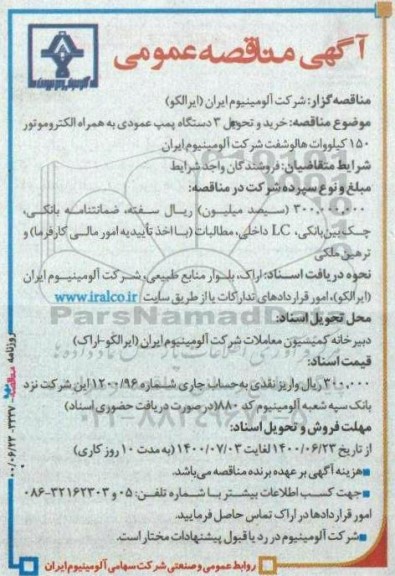 آگهی مناقصه عمومی
مناقصه گزار: شرکت آلومینیوم ایران (ایرالکو)
موضوع مناقصه: خرید و تحویل ۳ دستگاه پمپ عمودی به همراه الکتروموتور
۱۵۰ کیلووات هالوشفت شرکت آلومینیوم ایران
شرایط متقاضیان: فروشندگان واجد شرایط
مبلغ و نوع سپرده شرکت در مناقصه:
(سیصد میلیون) ریال سفته، ضمانتنامه بانکی،
چک بین بانکی، LC داخلی، مطالبات (با اخذ تأییدیه امور مالی کارفرما) و
ترهین ملکی
نحوه دریافت اسناد: اراک، بلوار منابع طبیعی، شرکت آلومینیوم ایران
(ایرالکو)، امور قراردادهای تدارکات یا از طریق سایت www.iralco.ir
محل تحویل اسناد:
دبیرخانه کمیسیون معاملات شرکت آلومینیوم ایران (ایرالکو-اراک)
قیمت اسناد:
۳۱۰,۰۰۰ ریال واریز نقدی به حساب جاری شماره ۱۲۰۰/۹۶ این شرکت نزد
بانک سپه شعبه آلومینیوم کد ۸۸۰ (در صورت دریافت حضوری اسناد)
مهلت فروش و تحویل اسناد:
از تاریخ ۱۴۰۰/۰۶/۲۳ لغایت ۱۴۰۰/۰۷/۰۳ (به مدت ۱۰ روز کاری)
هزینه آگهی بر عهده برنده مناقصه می‌باشد.
جهت کسب اطلاعات بیشتر با شماره تلفن: ۰۵ و ۳۲۱۶۲۳۰۳-۰۸۶
امور قراردادها در اراک تماس حاصل فرمایید.
شرکت آلومینیوم در رد یا قبول پیشنهادات مختار است.
روابط عمومی و صنعتی شرکت سهامی آلومینیوم ایران
روزنامه مناقصه ۲۳۳۷- ۰۰/۰۶/۲۳
ParsNamadData